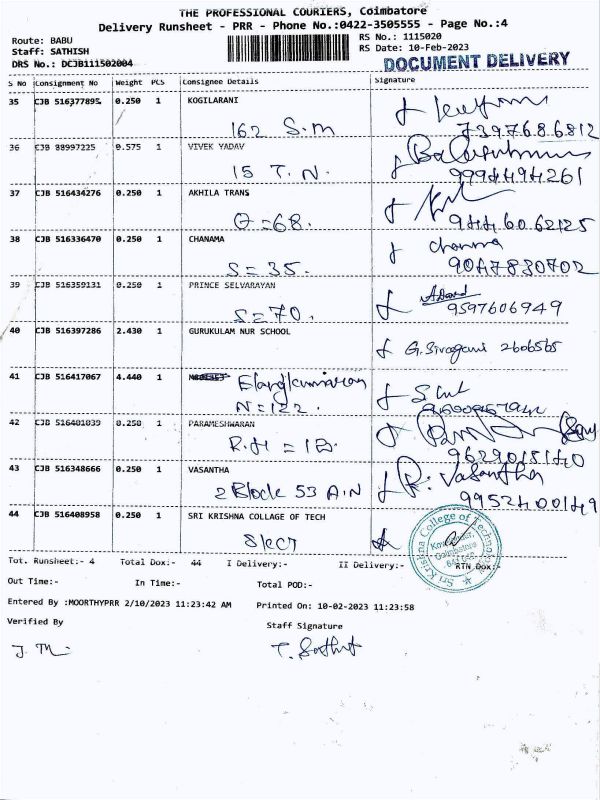 THE PROFESSIONAL COURIERS, Coimbatore
Delivery Runsheet - PRR - Phone No.:0422-3505555 - Page No.:4
Route: BABU
RS No.: 1115020
Staff: SATHISH
RS Date: 10-Feb-2023
DRS No.: DCJB111502004
DOCUMENT DELIVERY
S No Consignment No Weight PCS Consignee Details Signature
35 CJB 516377895 0.250 1 KOGILARANI
162 S.M
7397686812
36 CJB 88997225 0.575 1 VIVEK YADAV
15 T.N.
9994494261
37 CJB 516434276 0.250 1 AKHILA TRANS
G=68.
9446062125
38 CJB 516336470 0.250 1 CHANAMA
S=35. 9047830702
39 CJB 516359131 0.250 1 PRINCE SELVARAYAN
S=70. 9597606949
40 CJB 516397286 2.430 1 GURUKULAM NUR SCHOOL
G. Sivagami 2606565
41 CJB 516417067 4.440 1 Elangkumaran
N=122.
42 CJB 516401039 0.250 1 PARAMESHWARAN
R.H = 12.
9629015140
43 CJB 516348666 0.250 1 VASANTHA R. Vasantha
2 Block 53 A.N 9952400149
44 CJB 516408958 0.250 1 SRI KRISHNA COLLAGE OF TECH
Sri Krishna College of Technology
Coimbatore
Tot. Runsheet:- 4 Total Dox:- 44 I Delivery:- II Delivery:- RTN Dox:-
Out Time:- In Time:- Total POD:-
Entered By :MOORTHYPRR 2/10/2023 11:23:42 AM Printed On: 10-02-2023 11:23:58
Verified By Staff Signature